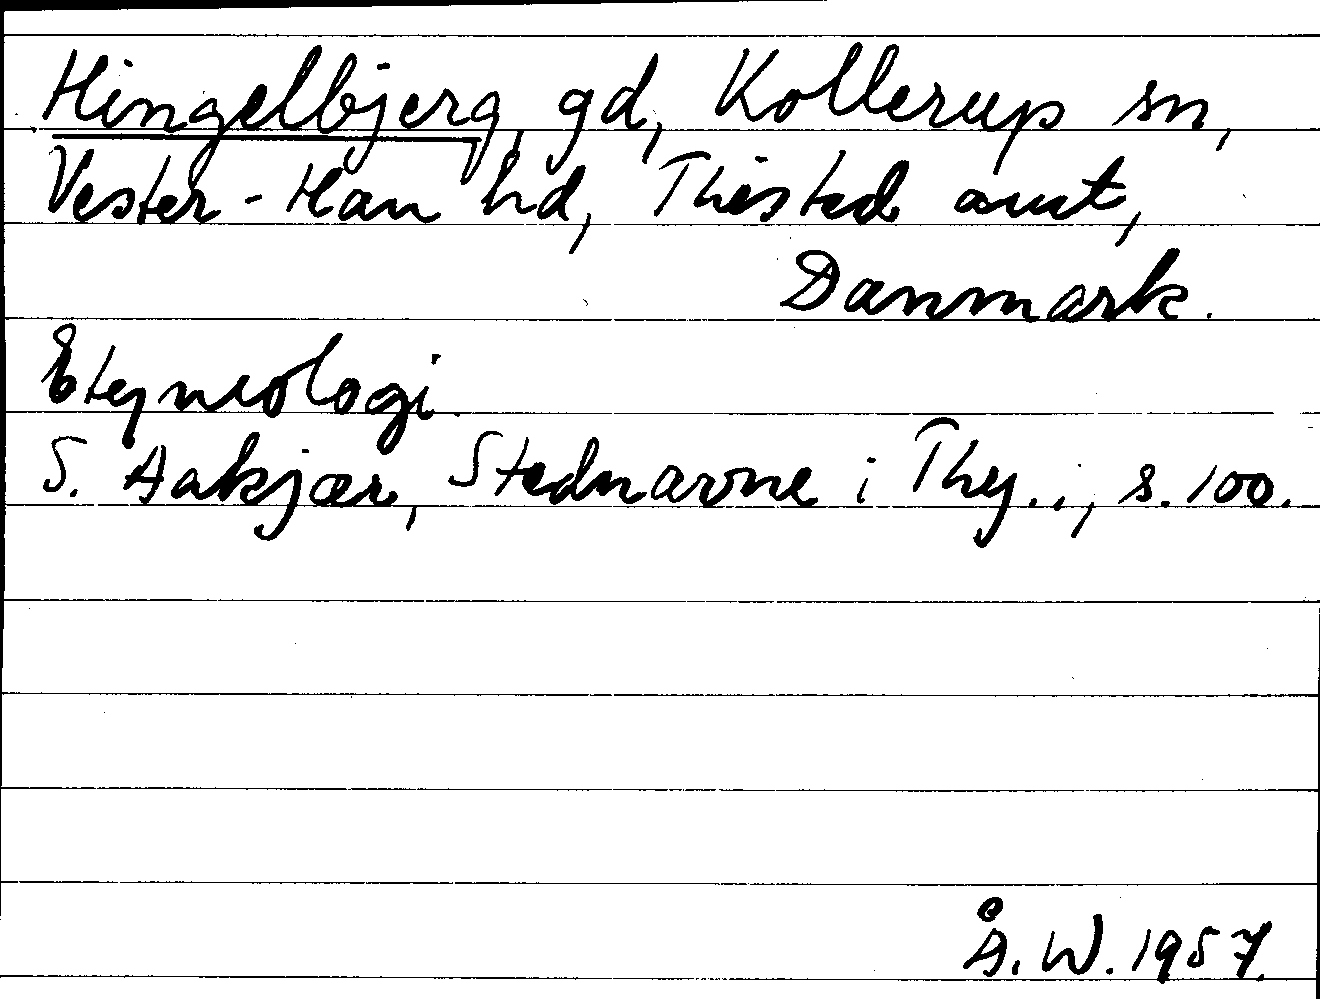 Hingelbjerg, gd, Kollerup sn,
Vester-Han hd, Thisted amt,
Danmark.
Etymologi.
S. Aakjær, Stednavne i Thy.., s. 100.
Å. W. 1957.